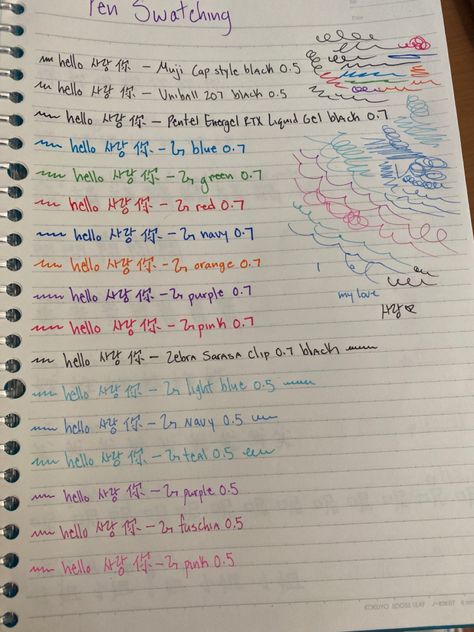 Pen Swatching
hello 사랑 你 – Muji Cap style black 0.5
hello 사랑 你 – Uniball 207 black 0.5
hello 사랑 你 – Pentel Energel RTX Liquid Gel black 0.7
hello 사랑 你 – ↳ blue 0.7
hello 사랑 你 – ↳ green 0.7
hello 사랑 你 – ↳ red 0.7
hello 사랑 你 – ↳ navy 0.7
hello 사랑 你 – ↳ orange 0.7
hello 사랑 你 – ↳ purple 0.7
hello 사랑 你 – ↳ pink 0.7
my love
사랑♡
hello 사랑 你 – Zebra Sarasa clip 0.7 black
hello 사랑 你 – ↳ light blue 0.5
hello 사랑 你 – ↳ Navy 0.5
hello 사랑 你 – ↳ teal 0.5
hello 사랑 你 – ↳ purple 0.5
hello 사랑 你 – ↳ fuschia 0.5
hello 사랑 你 – ↳ pink 0.5